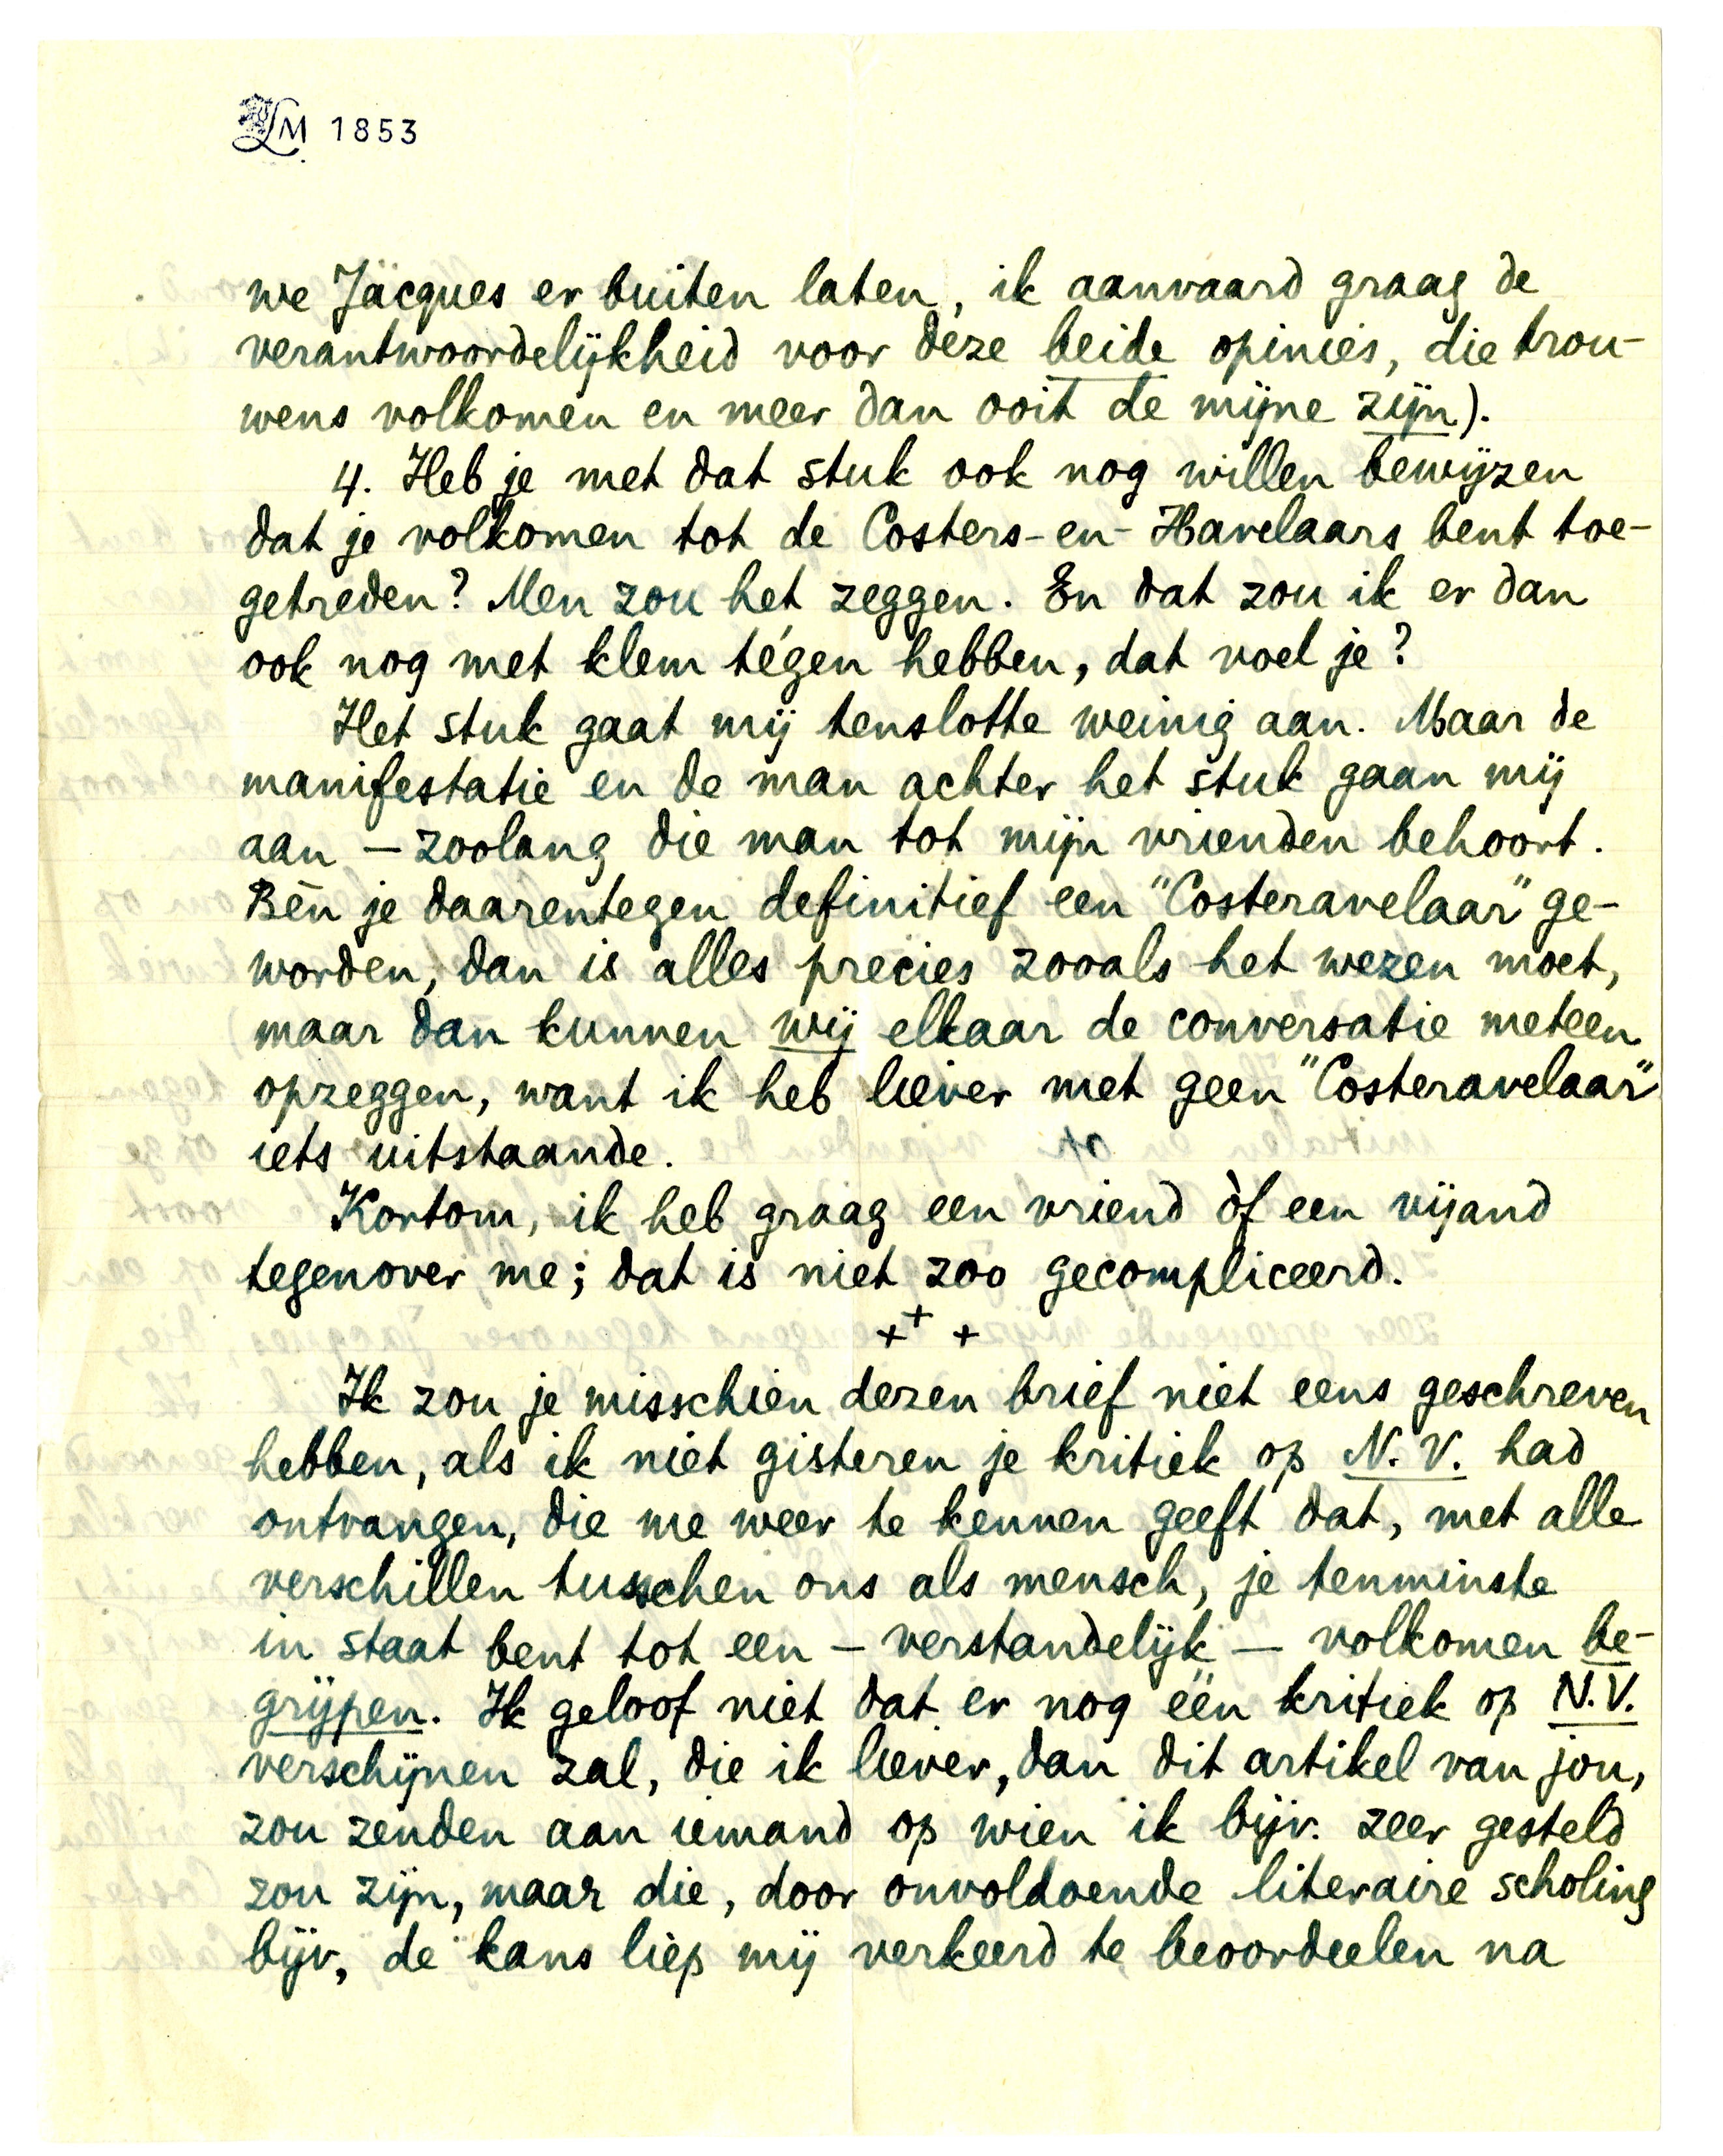 LM 1853
we Jacques er buiten laten, ik aanvaard graag de
verantwoordelijkheid voor deze beide opinies, die trou-
wens volkomen en meer dan ooit de mijne zijn).
4. Heb je met dat stuk ook nog willen bewijzen
dat je volkomen tot de Costers-en-Havelaars bent toe-
getreden? Men zou het zeggen. En dat zou ik er dan
ook nog met klem tégen hebben, dat voel je?
Het stuk gaat mij tenslotte weinig aan. Maar de
manifestatie en de man achter het stuk gaan mij
aan — zoolang die man tot mijn vrienden behoort.
Bèn je daarentegen definitief een "Costeravelaar" ge-
worden, dan is alles precies zooals het wezen moet,
maar dan kunnen wij elkaar de conversatie meteen
opzeggen, want ik heb liever met geen "Costeravelaar"
iets uitstaande.
Kortom, ik heb graag een vriend òf een vijand
tegenover me; dat is niet zoo gecompliceerd.
+ + +
Ik zou je misschien dezen brief niet eens geschreven
hebben, als ik niet gisteren je kritiek op N.V. had
ontvangen, die me weer te kennen geeft dat, met alle
verschillen tusschen ons als mensch, je tenminste
in staat bent tot een — verstandelijk — volkomen be-
grijpen. Ik geloof niet dat er nog één kritiek op N.V.
verschijnen zal, die ik liever, dan dit artikel van jou,
zou zenden aan iemand op wien ik bijv. zeer gesteld
zou zijn, maar die, door onvoldoende literaire scholing
bijv, de kans liep mij verkeerd te beoordeelen na